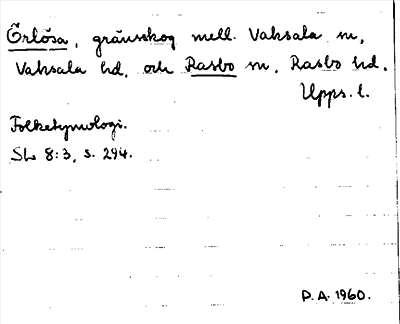 Örlösa, gränsskog mell. Vaksala sn,
Vaksala hd, och Rasbo sn, Rasbo hd.
Upps. l.
Folketymologi.
SL 8:3, s. 294.
P.A. 1960.